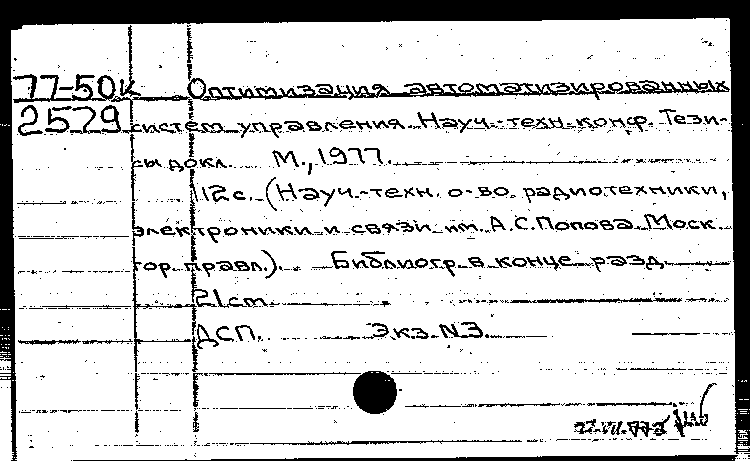 77-50к Оптимизация автоматизированных
2579 систем управления. Науч.-техн. конф. Тези-
сы докл. М., 1977.
112с. (Науч.-техн. о-во радиотехники,
электроники и связи им. А.С.Попова. Моск.
гор. правл.). Библиогр. в конце разд.
21cm.
ДСП. Экз. №3.